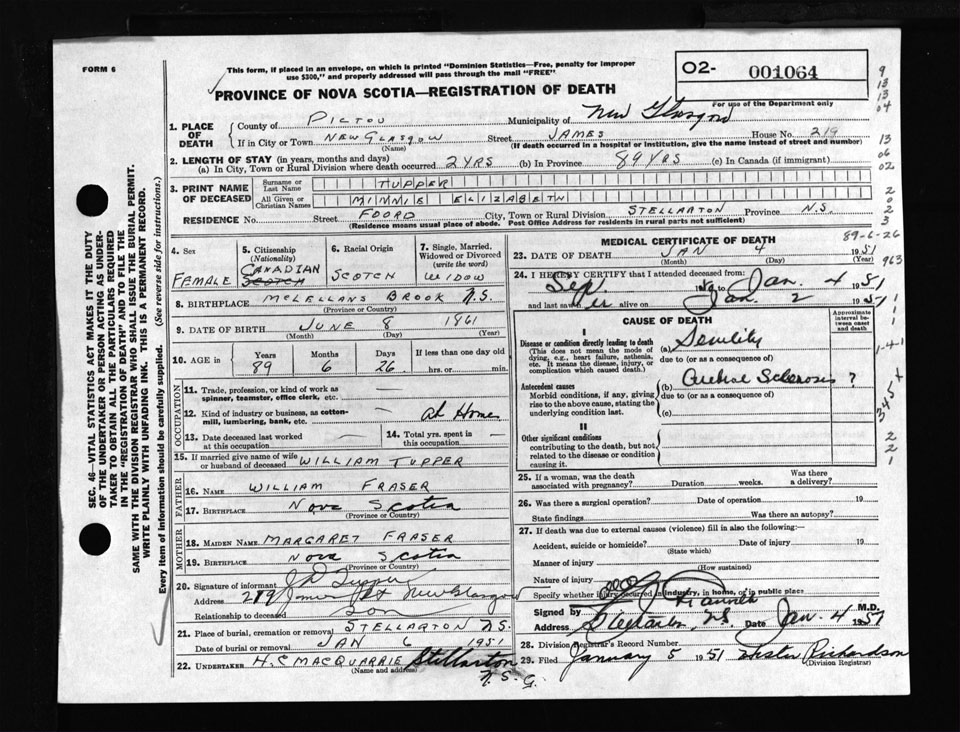 FORM 6
This form, if placed in an envelope, on which is printed "Dominion Statistics—Free, penalty for improper
use $300," and properly addressed will pass through the mail "FREE"
O2- 001064
For use of the Department only
PROVINCE OF NOVA SCOTIA—REGISTRATION OF DEATH
1. PLACE OF DEATH
County of PICTOU Municipality of New Glasgow
If in City or Town NEW GLASGOW Street JAMES House No. 219
(Name) (If death occurred in a hospital or institution, give the name instead of street and number)
2. LENGTH OF STAY (in years, months and days)
(a) In City, Town or Rural Division where death occurred 2 YRS (b) In Province 89 YRS (c) In Canada (if immigrant)
3. PRINT NAME OF DECEASED
Surname or Last Name TUPPER
All Given or Christian Names MINNIE ELIZABETH
RESIDENCE No. Street FOORD City, Town or Rural Division STELLARTON Province N.S.
(Residence means usual place of abode. Post Office Address for residents in rural parts not sufficient)
4. Sex FEMALE
5. Citizenship (Nationality) CANADIAN SCOTCH
6. Racial Origin SCOTCH
7. Single, Married, Widowed or Divorced (write the word) WIDOW
8. BIRTHPLACE McLELLANS BROOK N.S.
(Province or Country)
9. DATE OF BIRTH JUNE 8 1961
(Month) (Day) (Year)
10. AGE in Years 89 Months 6 Days 26 If less than one day old hrs. or min.
OCCUPATION
11. Trade, profession, or kind of work as spinner, teamster, office clerk, etc.
12. Kind of industry or business, as cotton-mill, lumbering, bank, etc. At Home
13. Date deceased last worked at this occupation
14. Total yrs. spent in this occupation
15. If married give name of wife or husband of deceased WILLIAM TUPPER
FATHER
16. NAME WILLIAM FRASER
17. BIRTHPLACE NOVA SCOTIA
(Province or Country)
MOTHER
18. MAIDEN NAME MARGARET FRASER
19. BIRTHPLACE NOVA SCOTIA
(Province or Country)
20. Signature of informant Tupper
Address 219 James St New Glasgow
Relationship to deceased son
21. Place of burial, cremation or removal STELLARTON N.S.
Date of burial or removal JAN 6 1951
22. UNDERTAKER H.C MACQUARRIE Stellarton
(Name and address)
N.S.
MEDICAL CERTIFICATE OF DEATH
89-6-26
23. DATE OF DEATH JAN 4 1951
(Month) (Day) (Year)
24. I HEREBY CERTIFY that I attended deceased from:
Sep to Jan. 4 1951
and last saw her alive on Jan. 2 1951
CAUSE OF DEATH
Approximate interval between onset and death
I
Disease or condition directly leading to death
(This does not mean the mode of dying, e.g., heart failure, asthenia, etc. It means the disease, injury, or complication which caused death.)
(a) Senility
due to (or as a consequence of)
Antecedent causes
Morbid conditions, if any, giving rise to the above cause, stating the underlying condition last.
(b) Sclerosis ?
due to (or as a consequence of)
(c)
II
Other significant conditions
contributing to the death, but not related to the disease or condition causing it.
25. If a woman, was the death associated with pregnancy? Duration weeks. Was there a delivery?
26. Was there a surgical operation? Date of operation 19
State findings Was there an autopsy?
27. If death was due to external causes (violence) fill in also the following:—
Accident, suicide or homicide? Date of injury 19
(State which)
Manner of injury
(How sustained)
Nature of injury
Specify whether injury occurred in industry, in home, or in public place
Signed by M.D.
Address Stellarton, N.S. Date Jan. 4 1951
28. Division Registrar's Record Number
29. Filed January 5 1951 Richardson
(Division Registrar)
SEC. 46—VITAL STATISTICS ACT MAKES IT THE DUTY
OF THE UNDERTAKER OR PERSON ACTING AS UNDER-
TAKER TO OBTAIN ALL THE PARTICULARS REQUIRED
IN THE "REGISTRATION OF DEATH" AND TO FILE THE
SAME WITH THE DIVISION REGISTRAR WHO SHALL ISSUE THE BURIAL PERMIT.
WRITE PLAINLY WITH UNFADING INK. THIS IS A PERMANENT RECORD.
Every item of information should be carefully supplied. (See reverse side for instructions.)
9
13
13
04
13
06
02
2
0
2
3
963